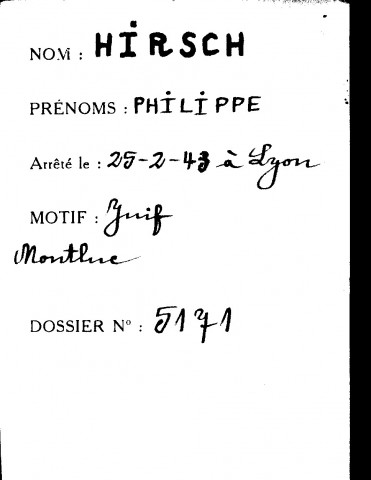 NOM : HIRSCH
PRÉNOMS : PHILIPPE
Arrêté le : 25-2-43 à Lyon
MOTIF : Juif
Montluc
DOSSIER Nº : 5171